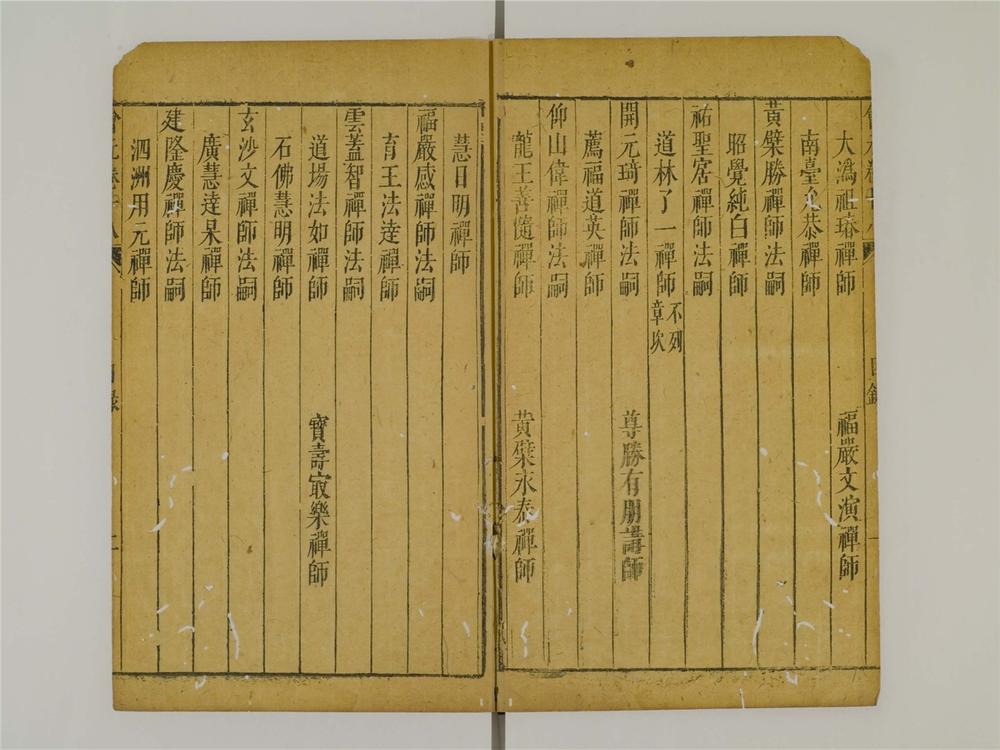 大溈祖瑃禪師　福嚴文演禪師
南臺允恭禪師
黃檗勝禪師法嗣
昭覺純白禪師
祐聖窟禪師法嗣
道林了一禪師 不列章次
開元琦禪師法嗣
薦福道英禪師　尊勝有朋講師
仰山偉禪師法嗣
龍王善隨禪師　黃檗永泰禪師
慧日明禪師
福嚴感禪師法嗣
育王法達禪師
雲蓋智禪師法嗣
道場法如禪師　寶壽㝡樂禪師
石佛慧明禪師
玄沙文禪師法嗣
廣慧達杲禪師
建隆慶禪師法嗣
泗洲用元禪師